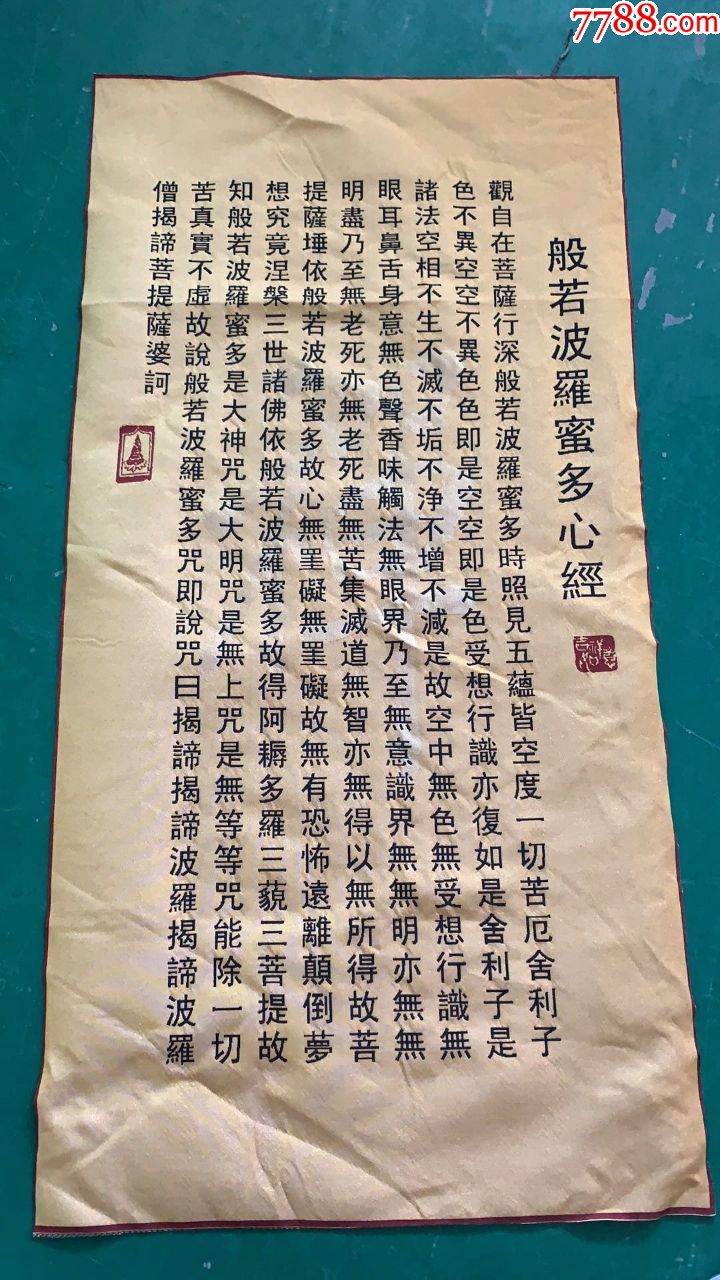 7788.com
般若波羅蜜多心經
吉祥如意
觀自在菩薩行深般若波羅蜜多時照見五蘊皆空度一切苦厄舍利子
色不異空空不異色色即是空空即是色受想行識亦復如是舍利子是
諸法空相不生不滅不垢不浄不增不減是故空中無色無受想行識無
眼耳鼻舌身意無色聲香味觸法無眼界乃至無意識界無無明亦無無
明盡乃至無老死亦無老死盡無苦集滅道無智亦無得以無所得故菩
提薩埵依般若波羅蜜多故心無罣礙無罣礙故無有恐怖遠離顛倒夢
想究竟涅槃三世諸佛依般若波羅蜜多故得阿耨多羅三藐三菩提故
知般若波羅蜜多是大神咒是大明咒是無上咒是無等等咒能除一切
苦真實不虛故說般若波羅蜜多咒即說咒曰揭諦揭諦波羅揭諦波羅
僧揭諦菩提薩婆訶